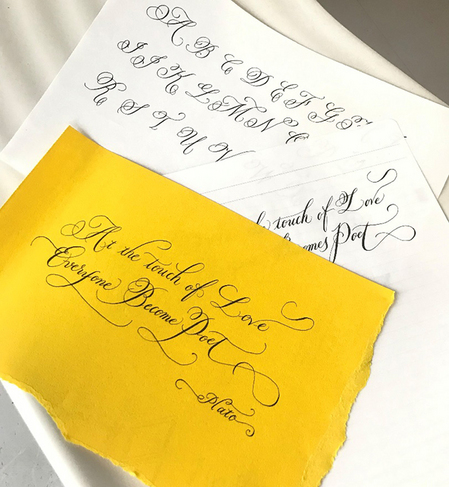 A B C D E F G
I J K L M N
R S T U V
touch of Love
Poet
At the touch of Love
Everyone Become Poet
Plato